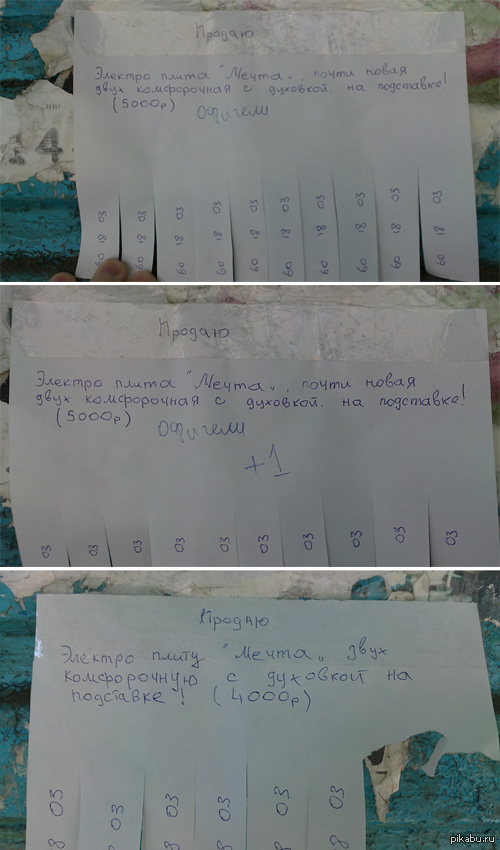 Продаю
Электро плита "Мечта„ , почти новая
двух комфорочная с духовкой. на подставке!
(5000р) Офигели
60 18 03
60 18 03
60 18 03
60 18 03
60 18 03
60 18 03
60 18 03
60 18 03
60 18 03
60 18 03
Продаю
Электро плита "Мечта„ , почти новая
двух комфорочная с духовкой. на подставке!
(5000р) Офигели
+1
03
03
03
03
03
03
03
03
03
03
Продаю
Электро плиту "Мечта„ двух
комфорочную с духовкой на
подставке! (4000р)
8 03
8 03
8 03
8 03
8 03
8 03
pikabu.ru